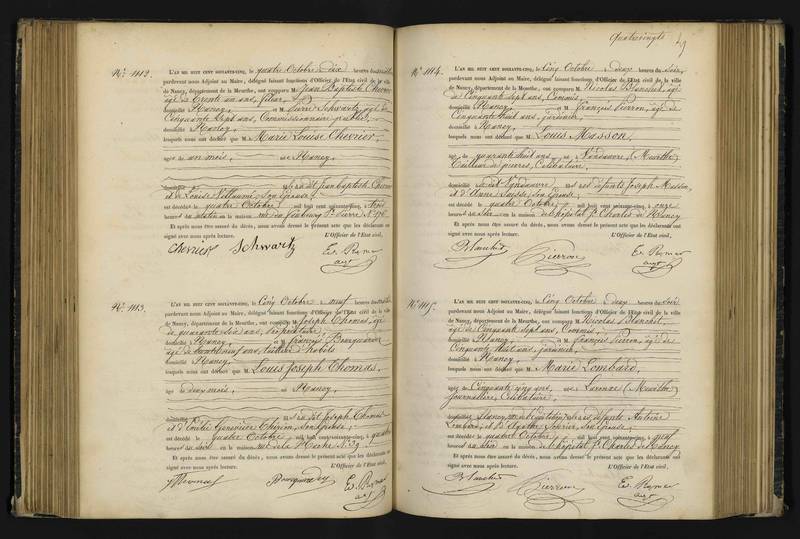 N° 1112.
L'AN MIL HUIT CENT SOIXANTE-CINQ, le quatre Octobre à dix heures du matin
pardevant nous Adjoint au Maire, délégué faisant fonctions d'Officier de l'Etat civil de la ville
de Nancy, département de la Meurthe, ont comparu M. Jean Baptiste Chevrier
âgé de trente un ans,
domicilié à Nancy, et M. Pierre Schwartz, âgé de
Cinquante Sept ans, Commissionnaire public,
domicilié Nancy
lesquels nous ont déclaré que M. Marie Louise Chevrier,
âgée de un mois, née Nancy,
domiciliée fille du dit Jean baptiste Chevrier
et de Louise Villaume, son épouse,
est décédée le quatre Octobre mil huit cent soixante-cinq, à trois
heures du matin en la maison rue du faubourg St Pierre N° 176
Et après nous être assuré du décès, nous avons dressé le présent acte que les déclarants ont
signé avec nous après lecture. L'Officier de l'Etat civil,
Chevrier Schwartz Ev. Remer
adjt
N° 1113.
L'AN MIL HUIT CENT SOIXANTE-CINQ, le Cinq Octobre à neuf heures du matin
pardevant nous Adjoint au Maire, délégué faisant fonctions d'Officier de l'Etat civil de la ville
de Nancy, département de la Meurthe, ont comparu M. Joseph Thomas, âgé
de quarante six ans,
domicilié à Nancy, et M. françois
âgé de ans, tailleur d'habits
domicilié Nancy
lesquels nous ont déclaré que M. Louis Joseph Thomas,
âgé de deux mois, né Nancy,
domicilié fils du dit Joseph Thomas
et d'Emilie Geneviève son épouse;
est décédé le quatre Octobre mil huit cent soixante-cinq, à quatre
heures du soir en la maison rue de la N° 29
Et après nous être assuré du décès, nous avons dressé le présent acte que les déclarants ont
signé avec nous après lecture. L'Officier de l'Etat civil,
Ev. Remer
adjt
Quatrevingts 49
N° 1114.
L'AN MIL HUIT CENT SOIXANTE-CINQ, le Cinq Octobre à deux heures du soir,
pardevant nous Adjoint au Maire, délégué faisant fonctions d'Officier de l'Etat civil de la ville
de Nancy, département de la Meurthe, ont comparu M. Nicolas Blanchet, âgé
de Cinquante sept ans, Commis,
domicilié à Nancy, et M. françois Pierron, âgé de
Cinquante huit ans, jardinier,
domicilié Nancy,
lesquels nous ont déclaré que M. Louis Masson
âgé de quarante huit ans né à Vandoeuvre, (Meurthe)
tailleur de pierres, Célibataire,
domicilié au dit Vandoeuvre fils des défunts Joseph Masson,
et d'Anne son épouse
est décédé le quatre Octobre mil huit cent soixante-cinq, à onze
heures du soir en la maison de l'hôpital St Charles de Nancy
Et après nous être assuré du décès, nous avons dressé le présent acte que les déclarants ont
signé avec nous après lecture. L'Officier de l'Etat civil,
Blanchet Pierron Ev. Remer
adjt
N° 1115.
L'AN MIL HUIT CENT SOIXANTE-CINQ, le Cinq Octobre à deux heures du soir
pardevant nous Adjoint au Maire, délégué faisant fonctions d'Officier de l'Etat civil de la ville
de Nancy, département de la Meurthe, ont comparu M. Nicolas Blanchet,
âgé de Cinquante sept ans, Commis,
domicilié à Nancy, et M. françois Pierron, âgé de
Cinquante huit ans, jardinier,
domicilié Nancy
lesquels nous ont déclaré que M. Marie Lombard,
âgée de Cinquante cinq ans, née (Meurthe)
journalière, Célibataire,
domiciliée Nancy, fille des défunts Antoine
Lombard, et d'Agathe son épouse;
est décédée le quatre Octobre mil huit cent soixante-cinq, à neuf
heures du soir en la maison de l'hôpital St Charles de Nancy
Et après nous être assuré du décès, nous avons dressé le présent acte que les déclarants ont
signé avec nous après lecture. L'Officier de l'Etat civil,
Blanchet Pierron Ev. Remer
adjt